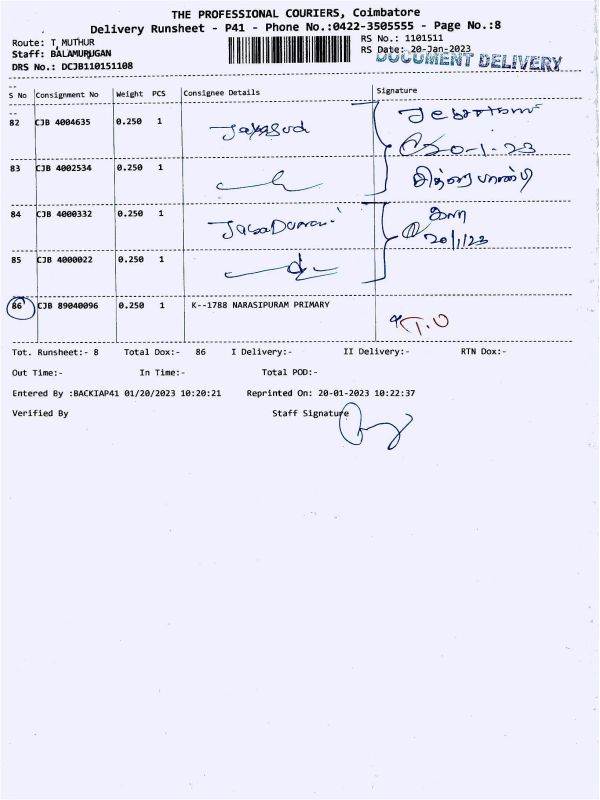 THE PROFESSIONAL COURIERS, Coimbatore
Delivery Runsheet - P41 - Phone No.:0422-3505555 - Page No.:8
Route: T_MUTHUR
RS No.: 1101511
Staff: BALAMURUGAN
RS Date: 20-Jan-2023
DOCUMENT DELIVERY
DRS No.: DCJB110151108
S No Consignment No Weight PCS Consignee Details Signature
82 CJB 4004635 0.250 1
20-1-23
83 CJB 4002534 0.250 1
சித்ரை பாண்டி
84 CJB 4000332 0.250 1
20/1/23
85 CJB 4000022 0.250 1
86 CJB 89040096 0.250 1 K--1788 NARASIPURAM PRIMARY
T.O
Tot. Runsheet:- 8 Total Dox:- 86 I Delivery:- II Delivery:- RTN Dox:-
Out Time:- In Time:- Total POD:-
Entered By :BACKIAP41 01/20/2023 10:20:21 Reprinted On: 20-01-2023 10:22:37
Verified By Staff Signature